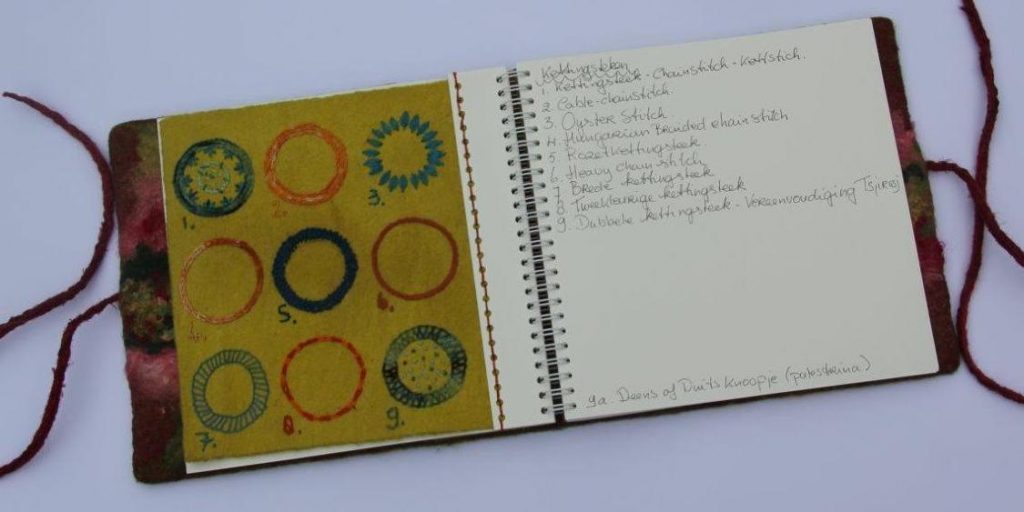 1.
2.
3.
4.
5.
6.
7.
8.
9.
Kettingsteken
1. Kettingsteek - Chainstitch - Kettstich.
2 Cable-chainstitch.
3. Oyster Stitch
4 Hungarian Branded chainstitch
5 Rozetkettingsteek
6 Heavy chain stitch
7 Brede kettingsteek
8 Tweekleurige kettingsteek
9. Dubbele kettingsteek - Vereenvoudiging
9a. Deens of Duits Knoopje (palestrina)